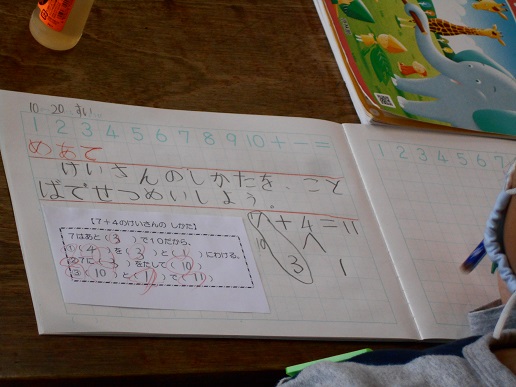 10 20 すい
1 2 3 4 5 6 7 8 9 10 + − =
めあて
けいさんのしかたを、こと
ばでせつめいしよう。
【7+4のけいさんの しかた】
7はあと( 3 )で10だから、
①( 4 )を( 3 )と( 1 )にわける。
②7に( 3 )をたして( 10 )
③( 10 )と( 1 )で( 11 )
7+4=11
10
3 1
1 2 3 4 5 6 7